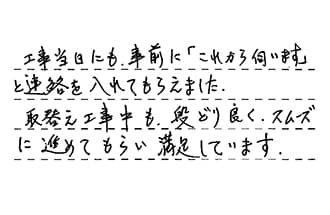 工事当日にも、事前に「これから伺います」
と連絡を入れてもらえました。
取替え工事中も、段どり良く、スムズ
に進めてもらい満足しています。